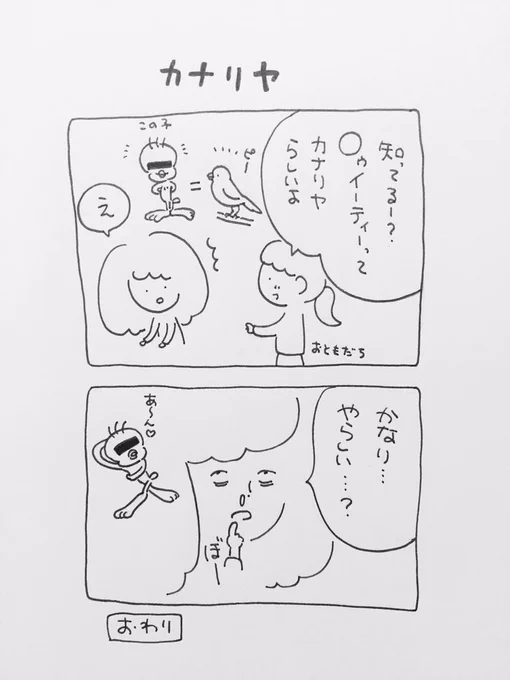 カナリヤ
知ってるー?
○ゥイーティーって
カナリヤ
らしいよ
この子
=
ピー
え
おともだち
かなり…
やらしい…?
あ〜ん♡
ぼー
お・わり